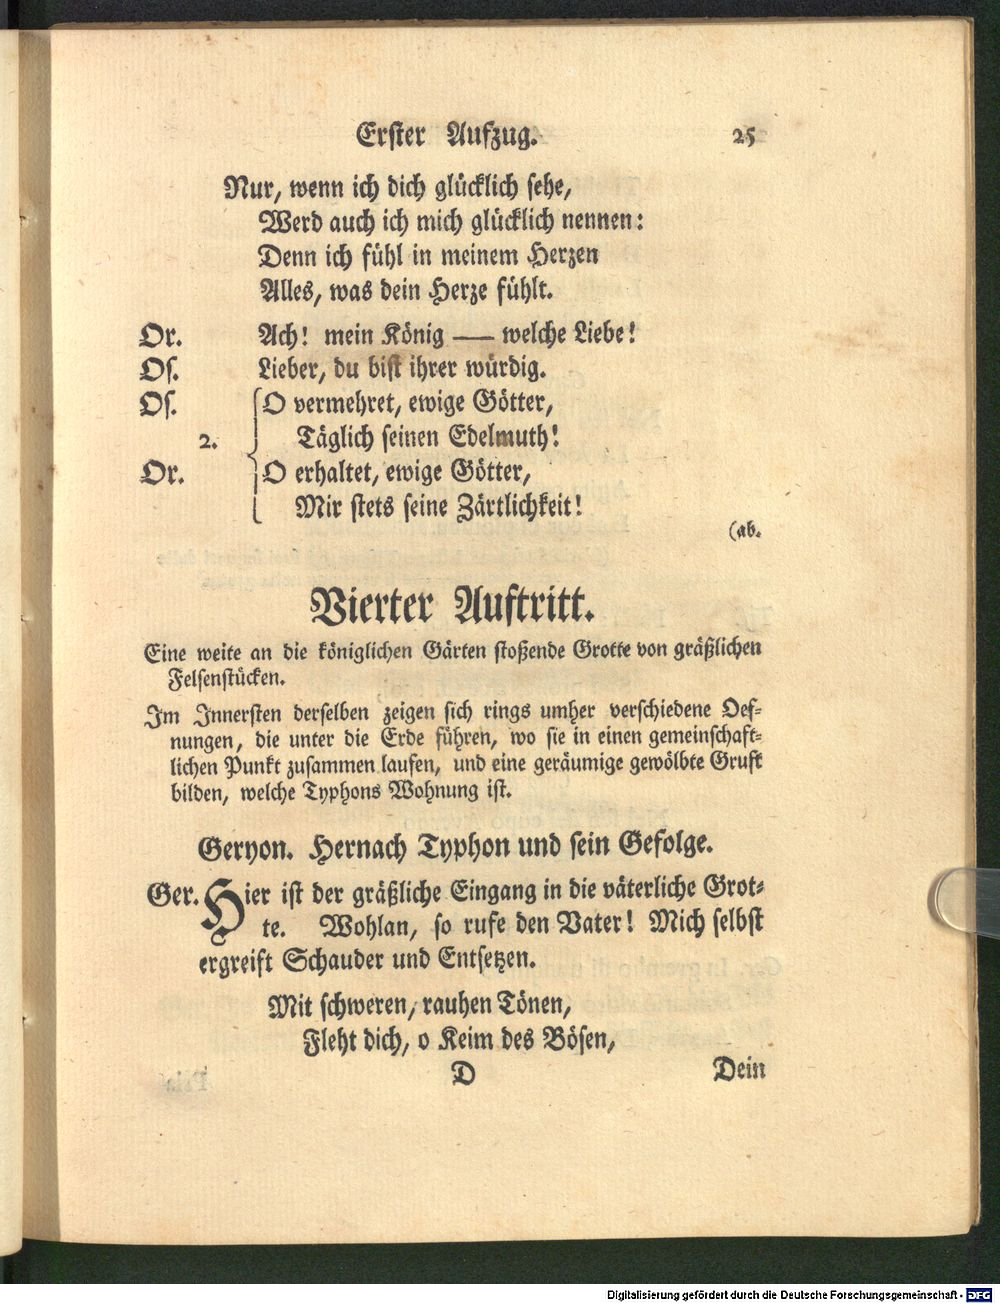 Erster Aufzug. 25
Nur, wenn ich dich glücklich sehe,
Werd auch ich mich glücklich nennen:
Denn ich fühl in meinem Herzen
Alles, was dein Herze fühlt.
Or. Ach! mein König — welche Liebe!
Os. Lieber, du bist ihrer würdig.
Os. O vermehret, ewige Götter,
2. Täglich seinen Edelmuth!
Or. O erhaltet, ewige Götter,
Mir stets seine Zärtlichkeit!
(ab.
Vierter Auftritt.
Eine weite an die königlichen Gärten stoßende Grotte von gräßlichen
Felsenstücken.
Im Innersten derselben zeigen sich rings umher verschiedene Oef-
nungen, die unter die Erde führen, wo sie in einen gemeinschaft-
lichen Punkt zusammen laufen, und eine geräumige gewölbte Gruft
bilden, welche Typhons Wohnung ist.
Geryon. Hernach Typhon und sein Gefolge.
Ger. Hier ist der gräßliche Eingang in die väterliche Grot-
te. Wohlan, so rufe den Vater! Mich selbst
ergreift Schauder und Entsetzen.
Mit schweren, rauhen Tönen,
Fleht dich, o Keim des Bösen,
D Dein
Digitalisierung gefördert durch die Deutsche Forschungsgemeinschaft - DFG